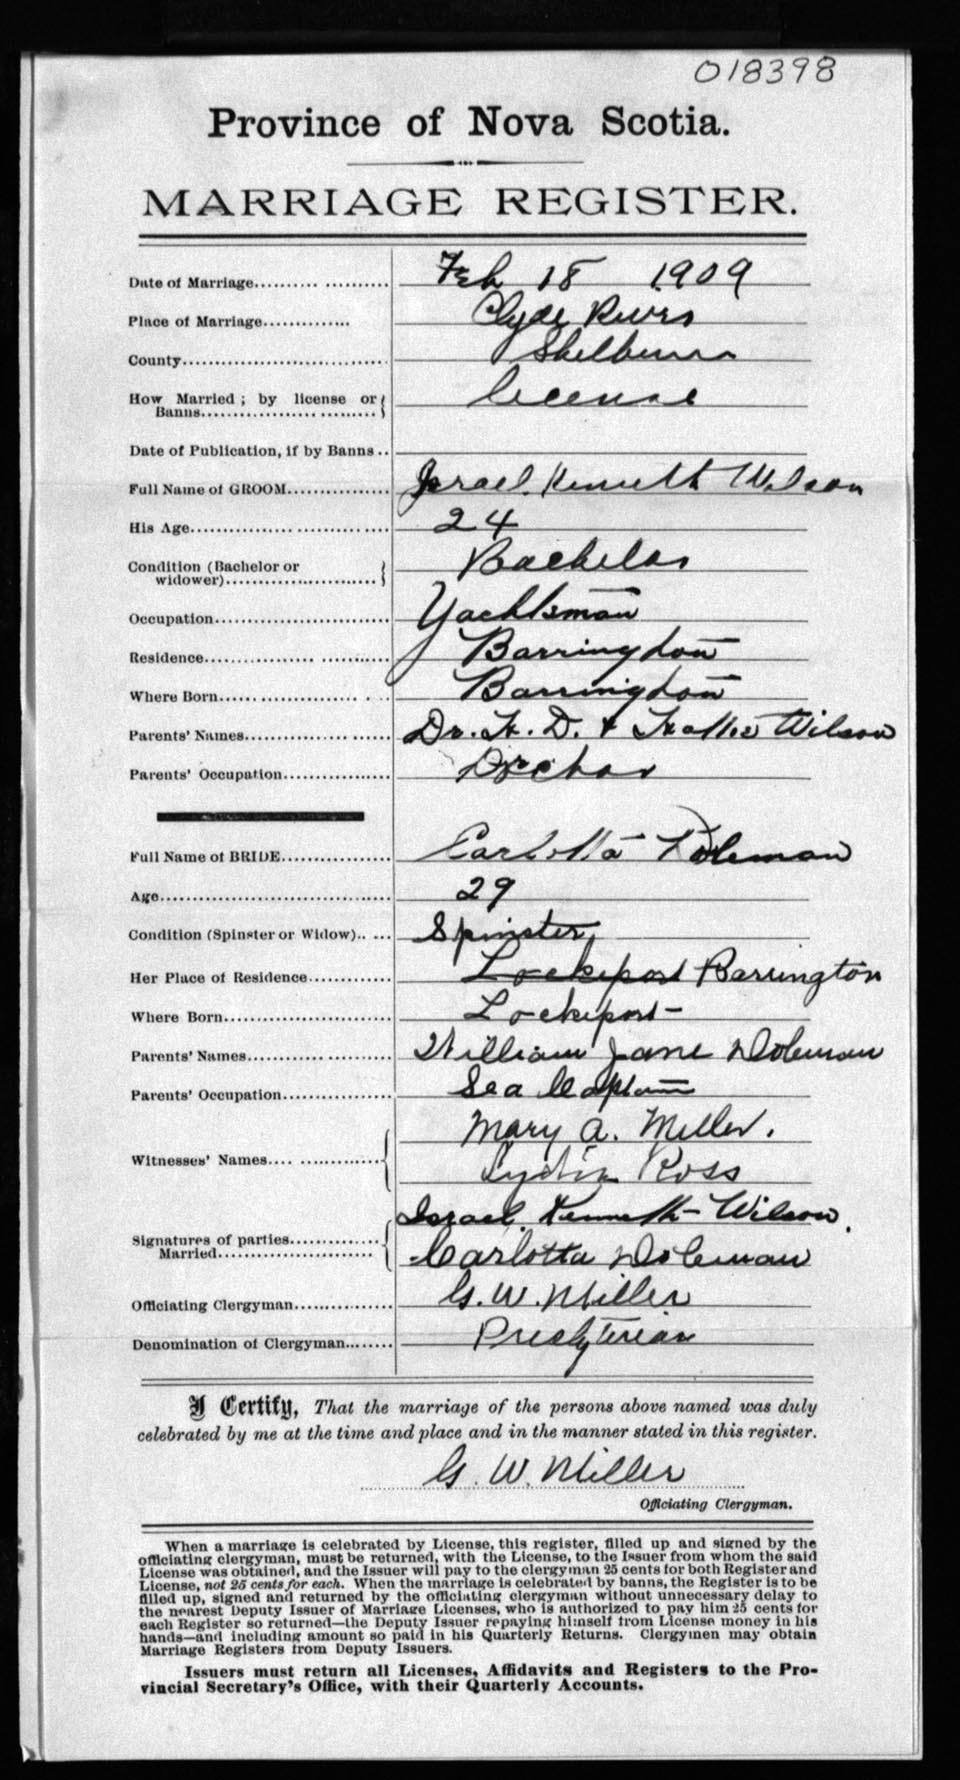 018398
Province of Nova Scotia.
MARRIAGE REGISTER.
Date of Marriage.......... ........... Feb 18 1909
Place of Marriage.............. Clyde River
County.................................. Shelburne
How Married ; by license or
Banns................................ license
Date of Publication, if by Banns ..
Full Name of GROOM................. Israel Kenneth Wilson
His Age.................................. 24
Condition (Bachelor or
widower)............................. Bachelor
Occupation............................. Yachtsman
Residence............................... Barrington
Where Born............................. Barrington
Parents' Names........................ Dr. & Wilson
Parents' Occupation.................. Doctor
Full Name of BRIDE................... Carlotta Doleman
Age....................................... 29
Condition (Spinster or Widow).. ... Spinster
Her Place of Residence............. Lockeport Barrington
Where Born............................. Lockeport
Parents' Names........................ William Jane Doleman
Parents' Occupation.................. Sea Captain
Mary A. Miller.
Witnesses' Names.... ..............
Lydia Ross
Israel Kenneth Wilson.
Signatures of parties..............
Married.........................
Carlotta Doleman
Officiating Clergyman................ G. W. Miller
Denomination of Clergyman........ Presbyterian
I Certify, That the marriage of the persons above named was duly
celebrated by me at the time and place and in the manner stated in this register.
G. W. Miller
Officiating Clergyman.
When a marriage is celebrated by License, this register, filled up and signed by the
officiating clergyman, must be returned, with the License, to the Issuer from whom the said
License was obtained, and the Issuer will pay to the clergyman 25 cents for both Register and
License, not 25 cents for each. When the marriage is celebrated by banns, the Register is to be
filled up, signed and returned by the officiating clergyman without unnecessary delay to
the nearest Deputy Issuer of Marriage Licenses, who is authorized to pay him 25 cents for
each Register so returned—the Deputy Issuer repaying himself from License money in his
hands—and including amount so paid in his Quarterly Returns. Clergymen may obtain
Marriage Registers from Deputy Issuers.
Issuers must return all Licenses, Affidavits and Registers to the Pro-
vincial Secretary's Office, with their Quarterly Accounts.